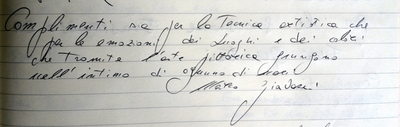 Complimenti sia per la tecnica artistica che
per le emozioni dei luoghi e dei
che tramite l'arte pittorica giungono
nell'intimo di ognuno di noi
Marco